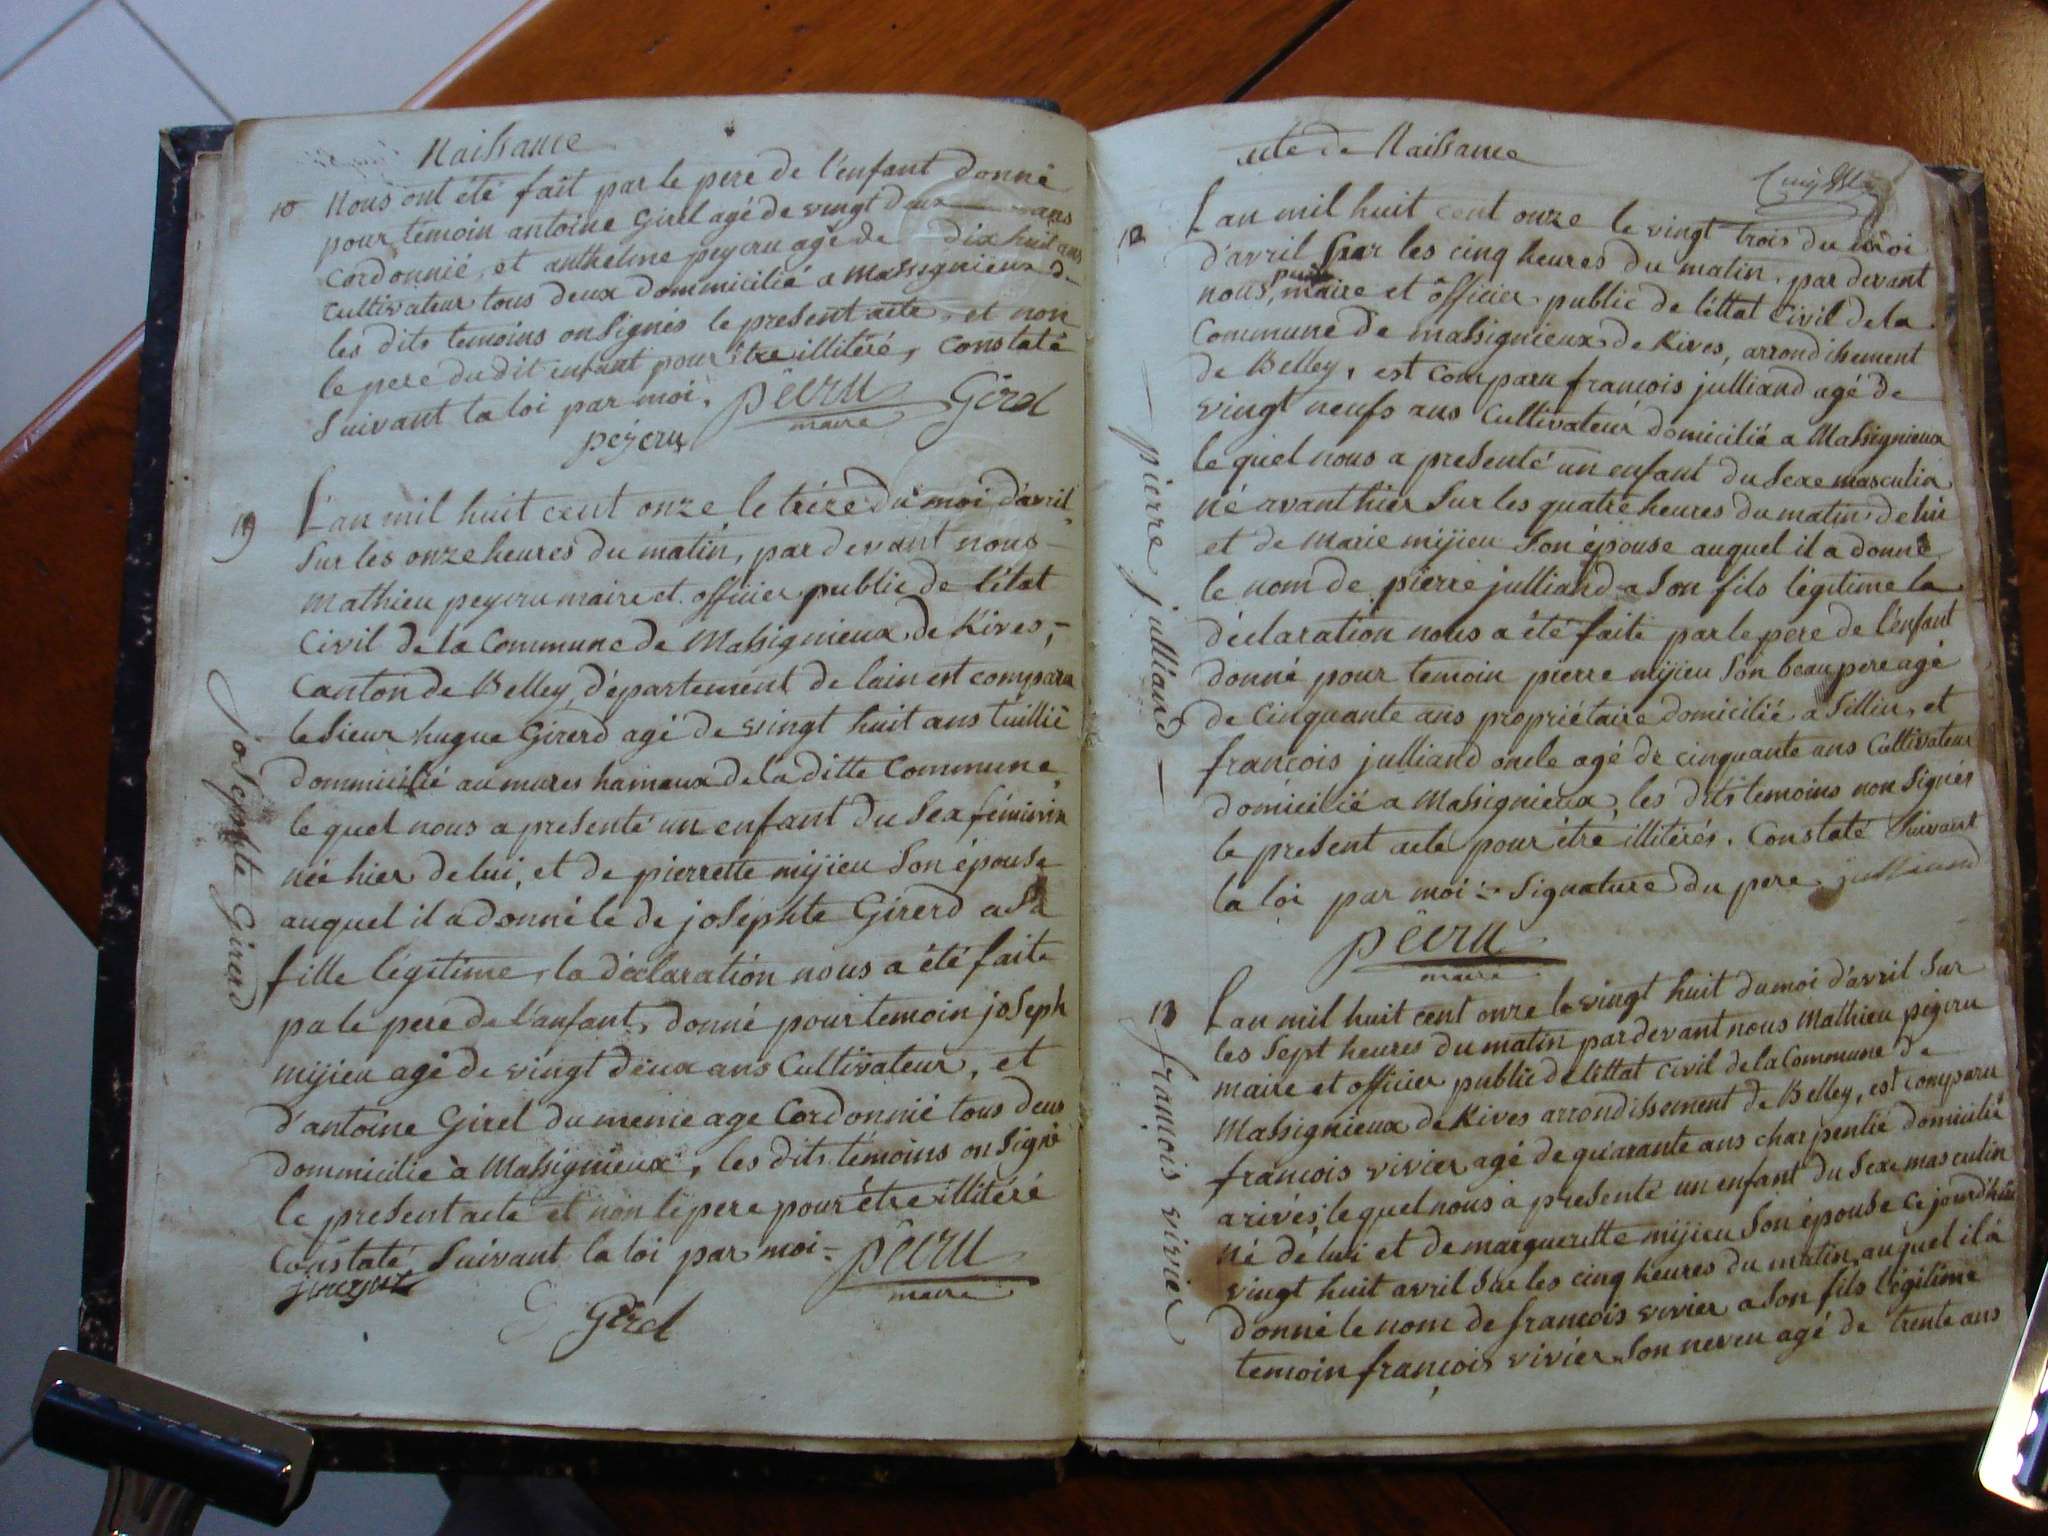 Naissance
10 Nous ont été fait par le pere de l'enfant donné
pour temoin antoine Girel agé de vingt deux ans
Cordonnié, et anthelme peycru agé de dix huit ans
Cultivateur tous deux dommicilié a Massignieux
les dits temoins on Signés le present acte, et non
le pere du dit enfant pour être illitéré, Constaté
Suivant la loi par moi. pêcru Girel
peycru maire
L'an mil huit cent onze le trèze du moi, d'avril
Sur les onze heures du matin, par devant nous
Mathieu peycru maire et officier public de l'état
Civil de la Commune de Massignieux de Rives,
Canton de Belley, département de lain est comparu
le Sieur hugue Girerd agé de vingt huit ans tuillié
dommicilié au mares hameaux de la ditte Commune,
le quel nous a presenté un enfant du Sex féminin
née hier de lui, et de pierrette mijieu Son épouse
auquel il a donné le de josephte Girerd a Sa
fille légitime, la déclaration nous a été faite
pa le pere de l'anfant, donné pour temoin joseph
mijieu agé de vingt deux ans Cultivateur, et
d'antoine Girel du meme age Cordonnié tous deux
dommicilié à Massignieux, les dits témoins on Signé
le present acte et non le pere pour être illitéré
Constaté Suivant la loi par moi pêcru
maire
Girel
josephte Girerd
acte de Naissance
12 L'an mil huit cent onze le vingt trois du moi
d'avril Sur les cinq heures du matin, par devant
nous, maire et officier public de l'éttat Civil de la
Commune de massignieux de Rives, arrondissement
de Belley, est comparu françois julliand agé de
vingt neufs ans Cultivateur domicilié a Massignieux
le quel nous a presenté un enfant du Sexe masculin
né avant hier Sur les quatre heures du matin de lui
et de marie mijieu Son épouse auquel il a donné
le nom de pierre julliand a Son fils légitime la
déclaration nous a été faite par le pere de l'enfant
donné pour temoin pierre mijieu Son beau pere agé
de Cinquante ans propriétaire domicilié a Sillin, et
françois julliand oncle agé de cinquante ans Cultivateur
domicilié a Massignieux, les dits temoins non Signés
le present acte pour être illitérés. Constaté Suivant
la loi par moi Signature du pere julliand
pêcru
maire
pierre julliand
13 L'an mil huit cent onze le vingt huit du moi d'avril Sur
les Sept heures du matin par devant nous Mathieu peycru
maire et officier public de l'éttat civil de la Commune de
Massignieux de Rives arrondissement de Belley, est comparu
françois vivier agé de quarante ans charpentié domicilié
arivés, le quel nous a presenté un enfant du Sexe masculin
né de lui et de marguerette mijieu Son épouse ce jourd'hui
vingt huit avril Sur les cinq heures du matin auquel il a
donné le nom de françois vivier a Son fils légitime
temoin françois vivier Son neveu agé de trente ans
françois vivier